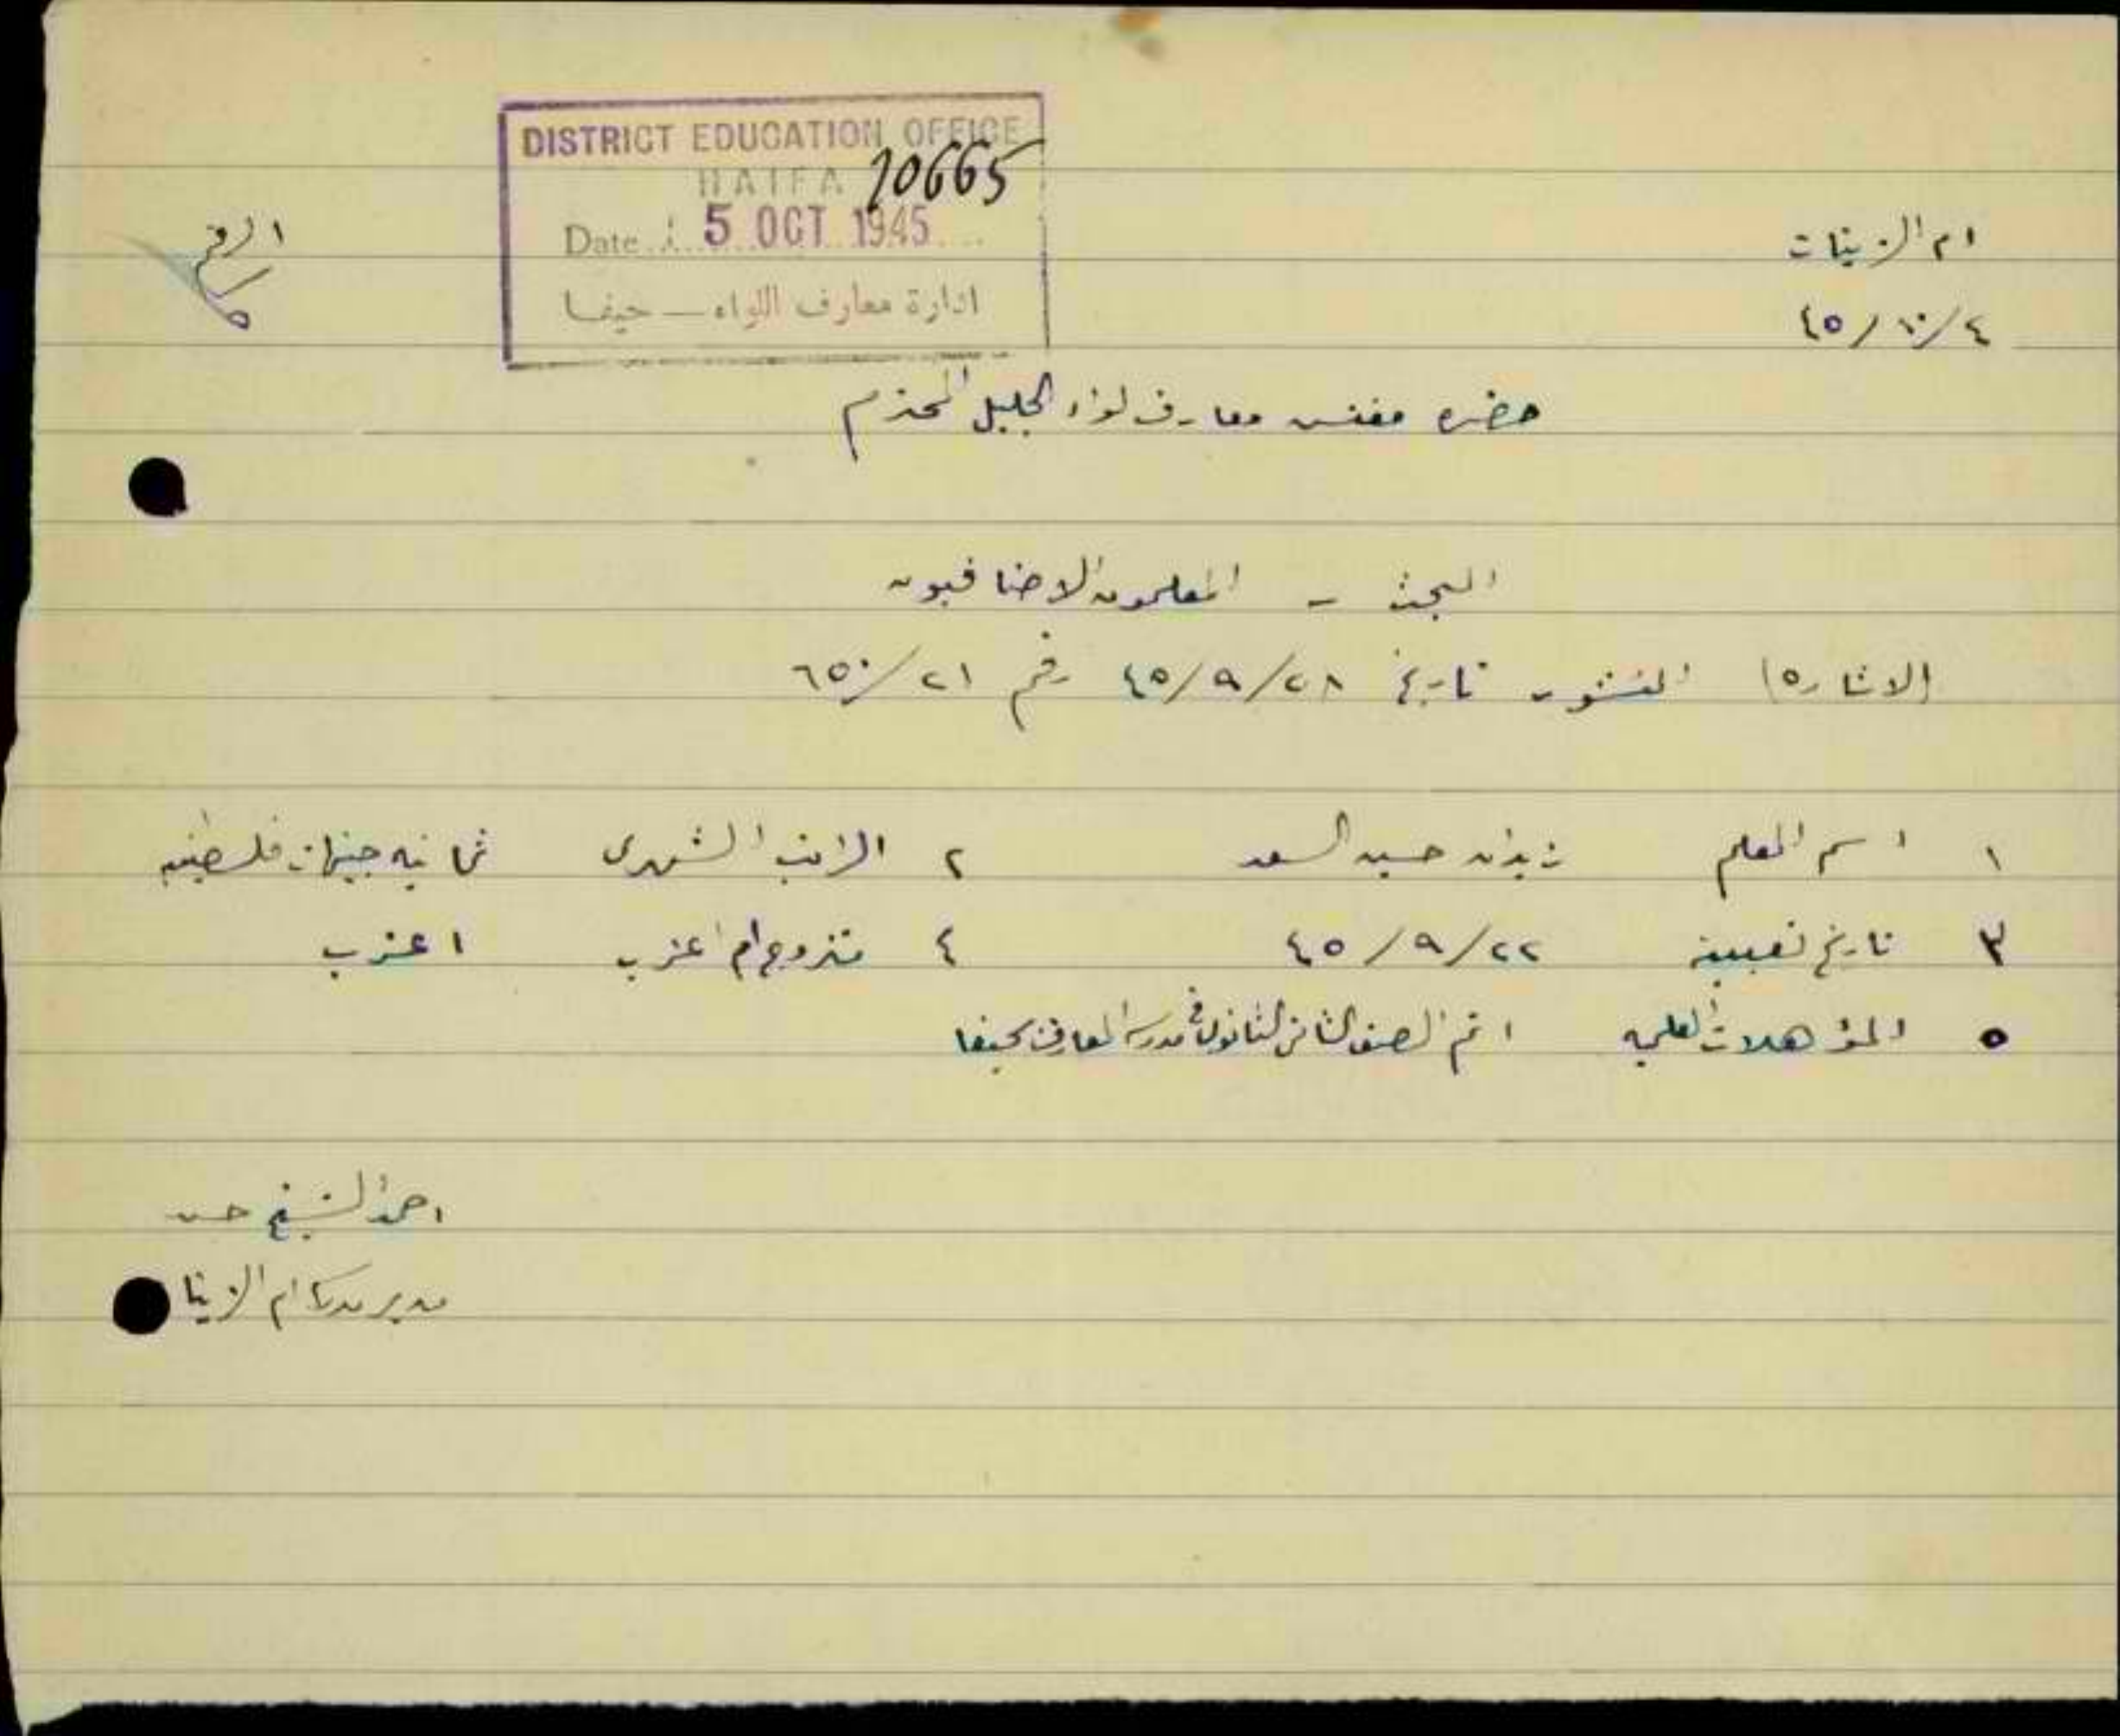 DISTRICT EDUCATION OFFICE
HAIFA 10665
Date 5 OCT 1945
ادارة معارف اللواء – حيفا
ام الزينات
الرقم
٤/١٠/٤٥
حضره مفتش معارف لواء الجليل المحترم
البحث – المعلمون الاضافيون
(الاشاره) المنشور تاريخ ٢٨/٩/٤٥ رقم ٢١/٦٥٠
١ اسم المعلم زيدان حسين السعد ٢ الراتب الشهري ثمانيه جنيهات فلسطينيه
٣ تاريخ تعيينه ٢٢/٩/٤٥ ٤ متزوج ام اعزب اعزب
٥ المؤهلات العلميه اتم الصف الثاني الثانوي في مدرسة المعارف بحيفا
احمد الشيخ حسن
مدير مدرسة ام الزينا